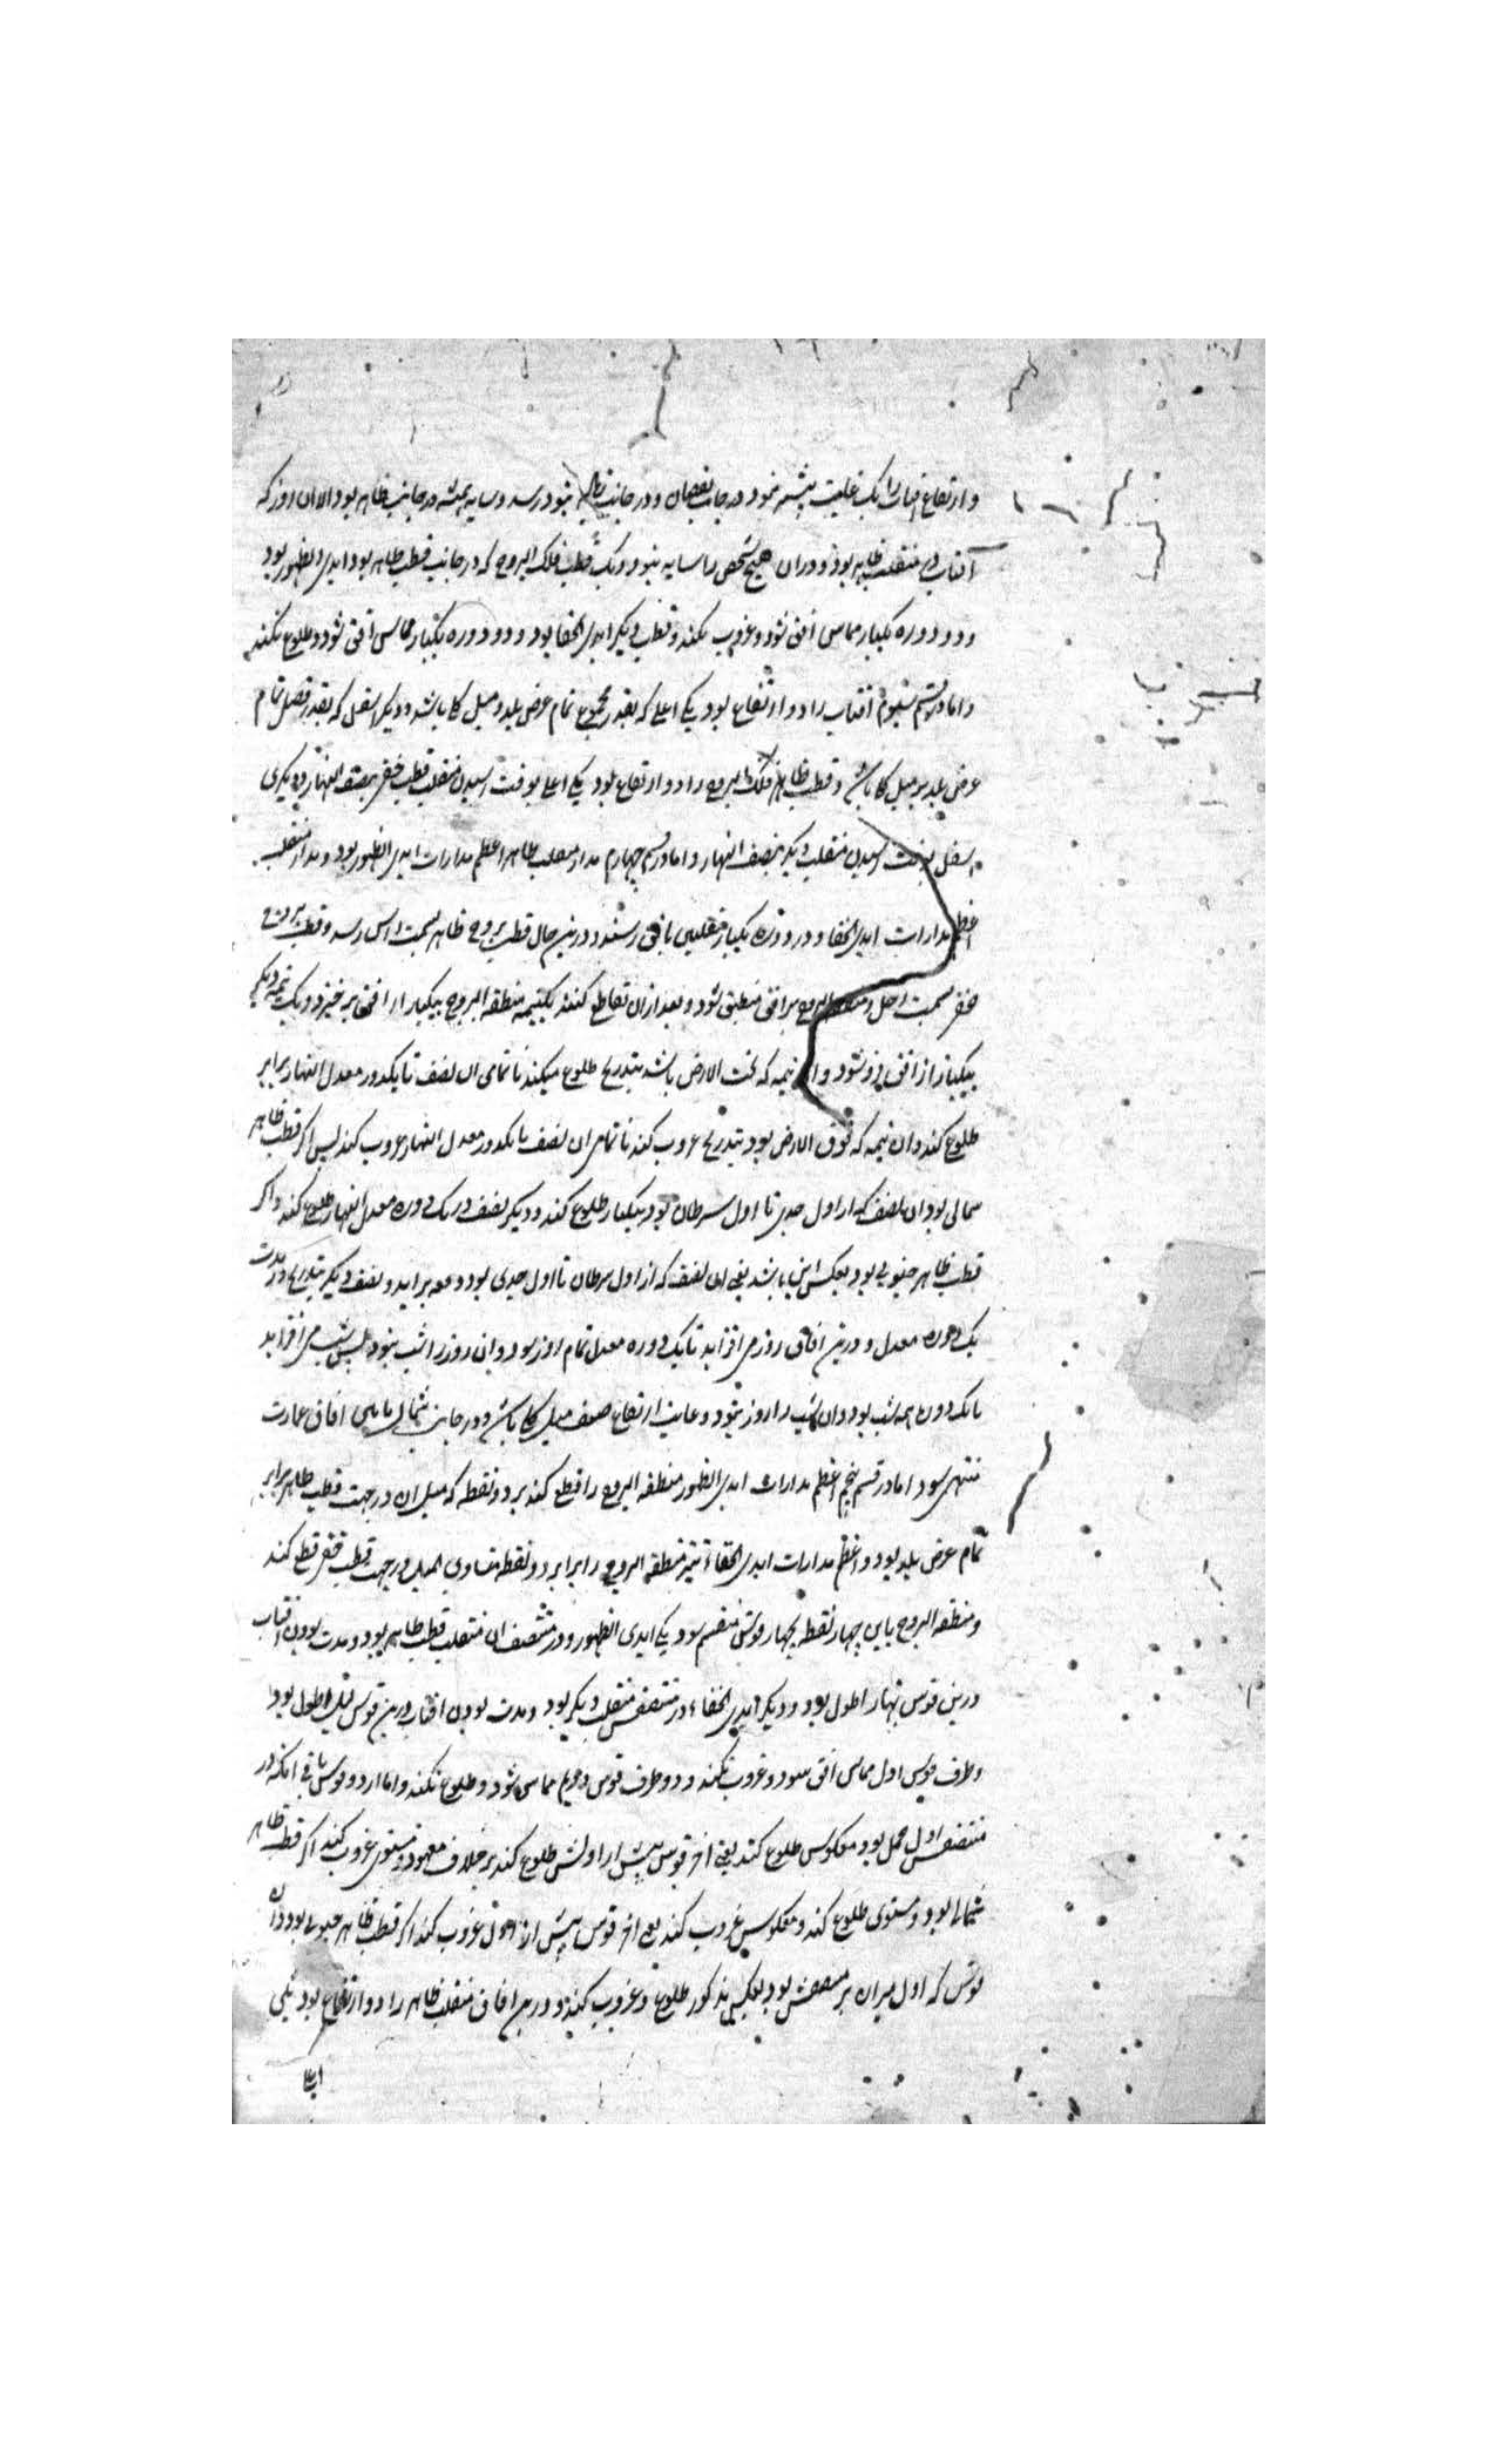 و ارتفاع افتاب را یک غایت بیشتر نبود در جانب نقصان و در جانب زیاده بنود رسد و سایه همیشه در جانب ظاهر بود الا ان روز که
آفتاب در منقلب ظاهر بود و دران هیچ شخص را سایه نبود و یک قطب فلک البروج که در جانب قطب ظاهر بود ابدی الظهور بود
و در دوره یکبار مماس افق شود و غروب نکند و قطب دیگر ابدی الخفا بود و در دوره یکبار مماس افق شود و طلوع نکند
و اما در قسم سیوم افتاب را دو ارتفاع بود یکی اعلی که بقدر مجموع تمام عرض بلد و میل کلی باشد و دیگر اسفل که بقدر فضل تمام
عرض بلد بر میل کلی باشد و قطب ظاهر فلک البروج را دو ارتفاع بود یکی اعلی بوقت رسیدن منقلب قطب خفی بنصف النهار و دیگری
اسفل بوقت رسیدن منقلب دیگر بنصف النهار و اما در قسم چهارم مدار منقلب ظاهر اعظم مدارات ابدی الظهور بود و مدار منقلب
اعظم مدارات ابدی الخفا و در دوره یکبار منقلبین بافق رسند و درین حال قطب بروج ظاهر بسمت راس رسد و قطب بروج
خفی بسمت رجل و منطقه البروج بر افق منطبق شود و بعد ازان تقاطع کنند یکنیمه منطقه البروج بیکبار از افق بر خیزد و یک نیمه دیگر
بیکبار از افق فرو شود و ان نیمه که تحت الارض باشد بتدریج طلوع میکند تا تمامی ان نصف تا یکدور معدل النهار برابر
طلوع کند و ان نیمه که فوق الارض بود بتدریج غروب کند تا تمامی ان نصف با یکدور معدل النهار غروب کند پس اکر قطب ظاهر
شمالی بود ان نصف که از اول جدی تا اول سرطان بود بیکبار طلوع کند و دیکر نصف در یک دوره معدل النهار طلوع کند و اکر
قطب ظاهر جنوبی بود بعکس این باشد یعنی ان نصف که از اول سرطان تا اول جدی بود دفعه براید و نصف دیکر بتدریج در مدت
یک دوره معدل و درین افاق روز می افزاید تا یک دوره معدل تمام روز بود و ان روز را شب نبود پس شب می افزاید
تا یک دوره همه شب بود و ان شب را روز نبود و غایت ارتفاع ضعف میل کلی باشد و در جانب شمال باین افاق عمارت
منتهی شود اما در قسم پنجم اعظم مدارات ابدی الظهور منطقه البروج را قطع کند بر دو نقطه که میل ان در جهت قطب ظاهر برابر
تمام عرض بلد بود و اعظم مدارات ابدی الخفاء نیز منطقه البروج را برابر دو نقطه متساوی المیل در جهت قطب خفی قطع کند
و منطقه البروج باین چهار نقطه بچهار قوس منقسم شود یکی ابدی الظهور و در منتصف ان منقلب قطب ظاهر بود و مدت بودن افتاب
درین قوس نهار اطول بود و دیکر ابدی الخفاء و در منتصفش منقلب دیکر بود و مدت بودن افتاب درین قوس لیل اطول بود
و طرف قوس اول مماس افق شود و غروب نکند و دو طرف قوس دویم مماس شود و طلوع نکند و اما از دو قوس باقی انکه در
منتصفش اول حمل بود معکوس طلوع کند یعنی اخر قوس پیش از اولش طلوع کند بر خلاف معهود و مستوی غروب کند اکر قطب ظاهر
شمالی بود و مستوی طلوع کند و معکوس غروب کند یعنی اخر قوس پیش از اول غروب کند اکر قطب ظاهر جنوبی بود و ان
قوس که اول میزان بر منتصفش بود بعکس مذکور طلوع و غروب کند و درین افاق منقلب ظاهر را دو ارتفاع بود یکی
اعلی